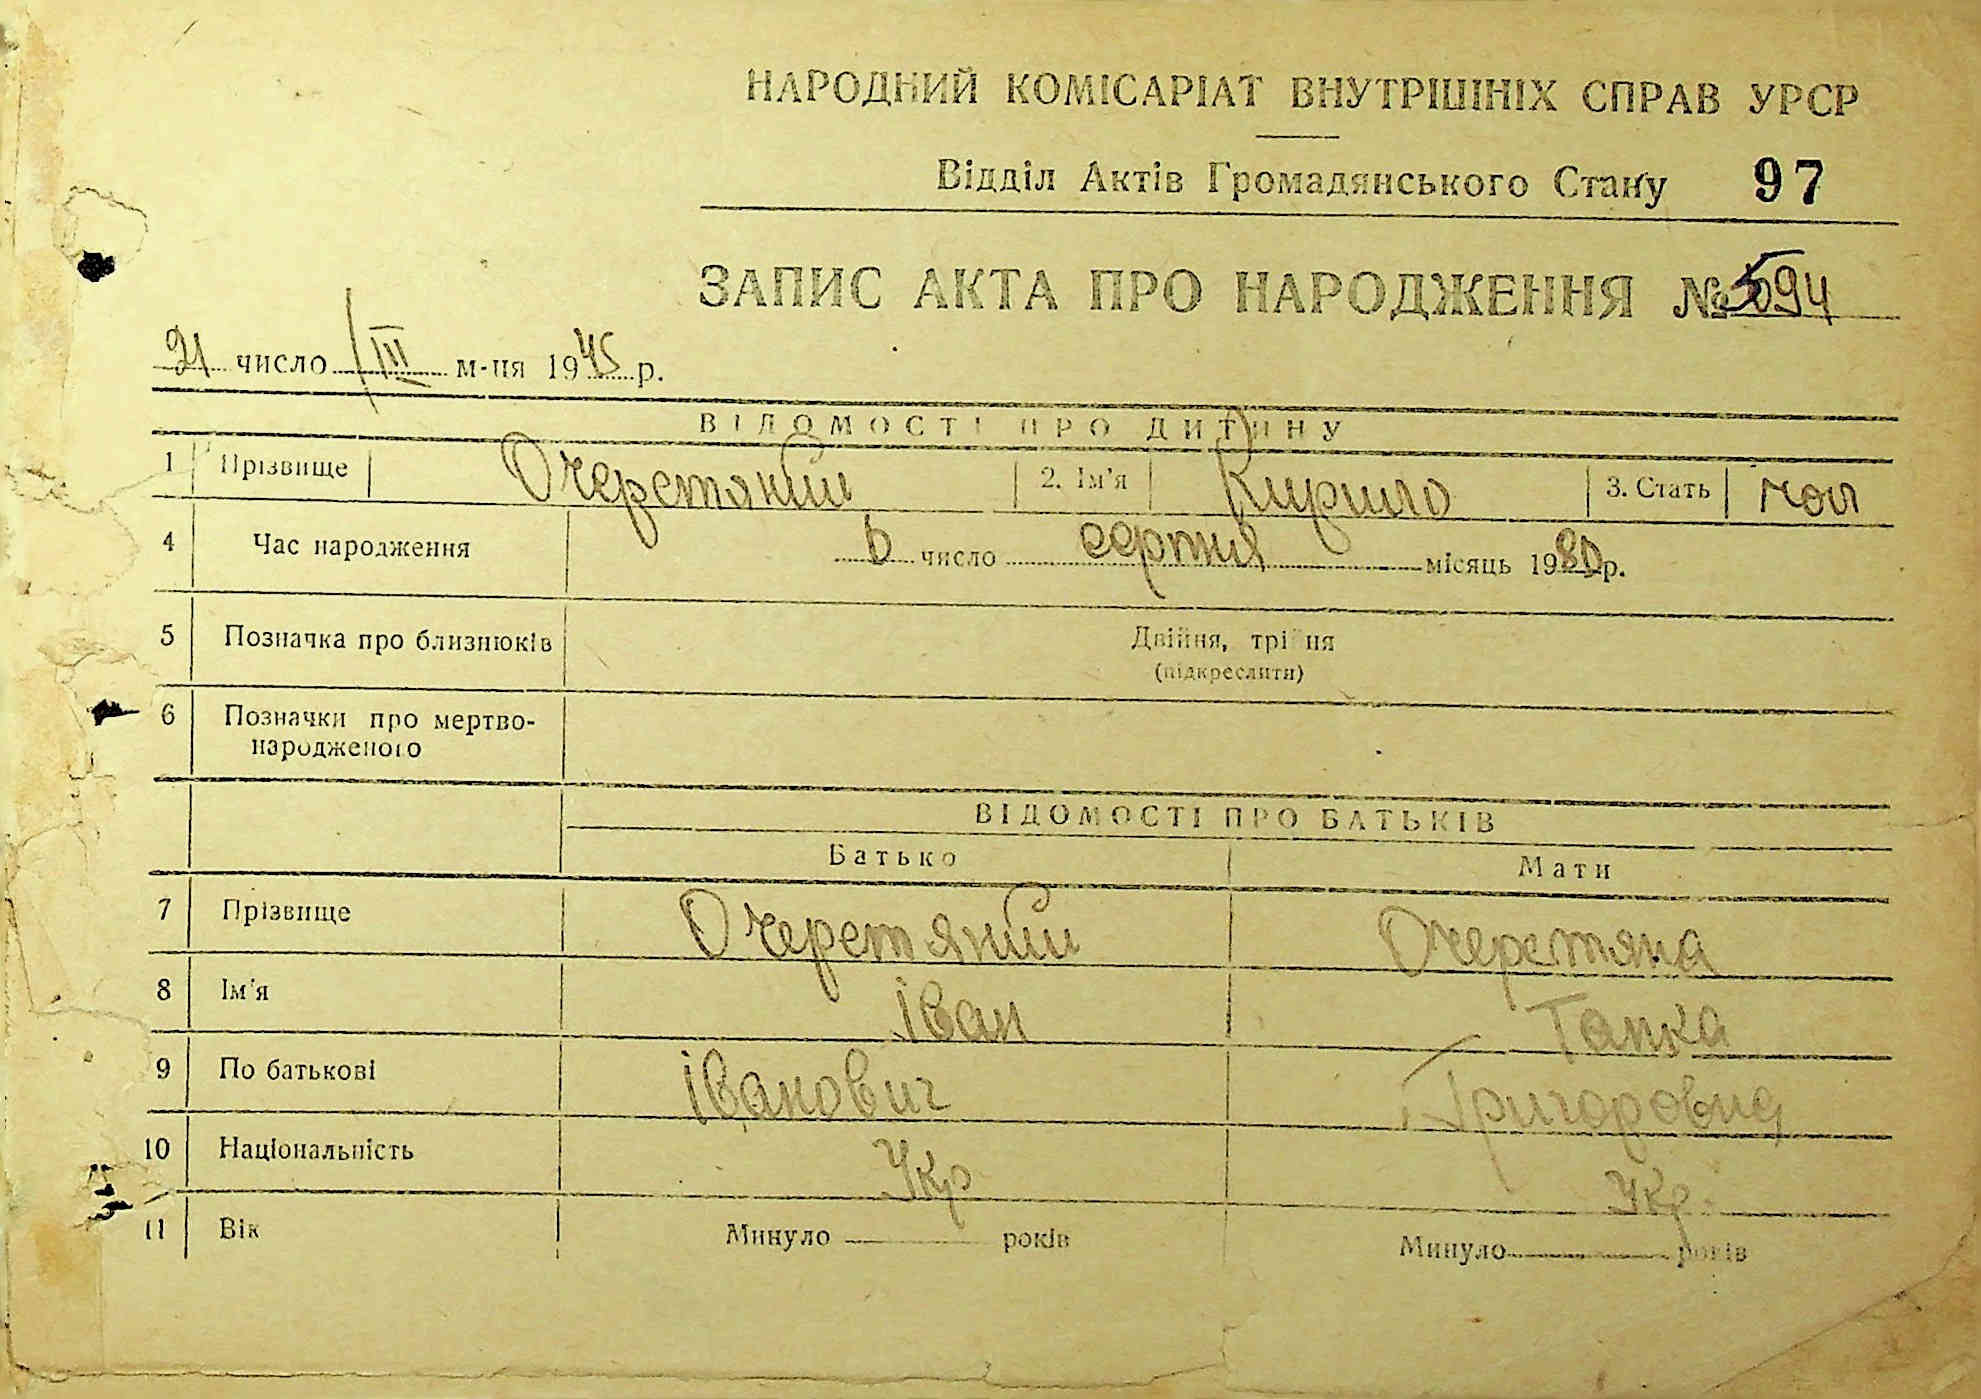 НАРОДНИЙ КОМІСАРІАТ ВНУТРІШНІХ СПРАВ УРСР
Відділ Актів Громадянського Стану 97
ЗАПИС АКТА ПРО НАРОДЖЕННЯ № 594
21 число III м-ця 1945 р.
ВІДОМОСТІ ПРО ДИТИНУ
1 Прізвище Очеретяний 2. Ім'я Кирило 3. Стать чол
4 Час народження 6 число серпня місяць 19 р.
5 Позначка про близнюків Двійня, трійня
(підкреслити)
6 Позначки про мертво-
народженого
ВІДОМОСТІ ПРО БАТЬКІВ
Батько Мати
7 Прізвище Очеретяний Очеретяна
8 Ім'я Іван
9 По батькові Іванович
10 Національність Укр Укр.
11 Вік Минуло років Минуло років